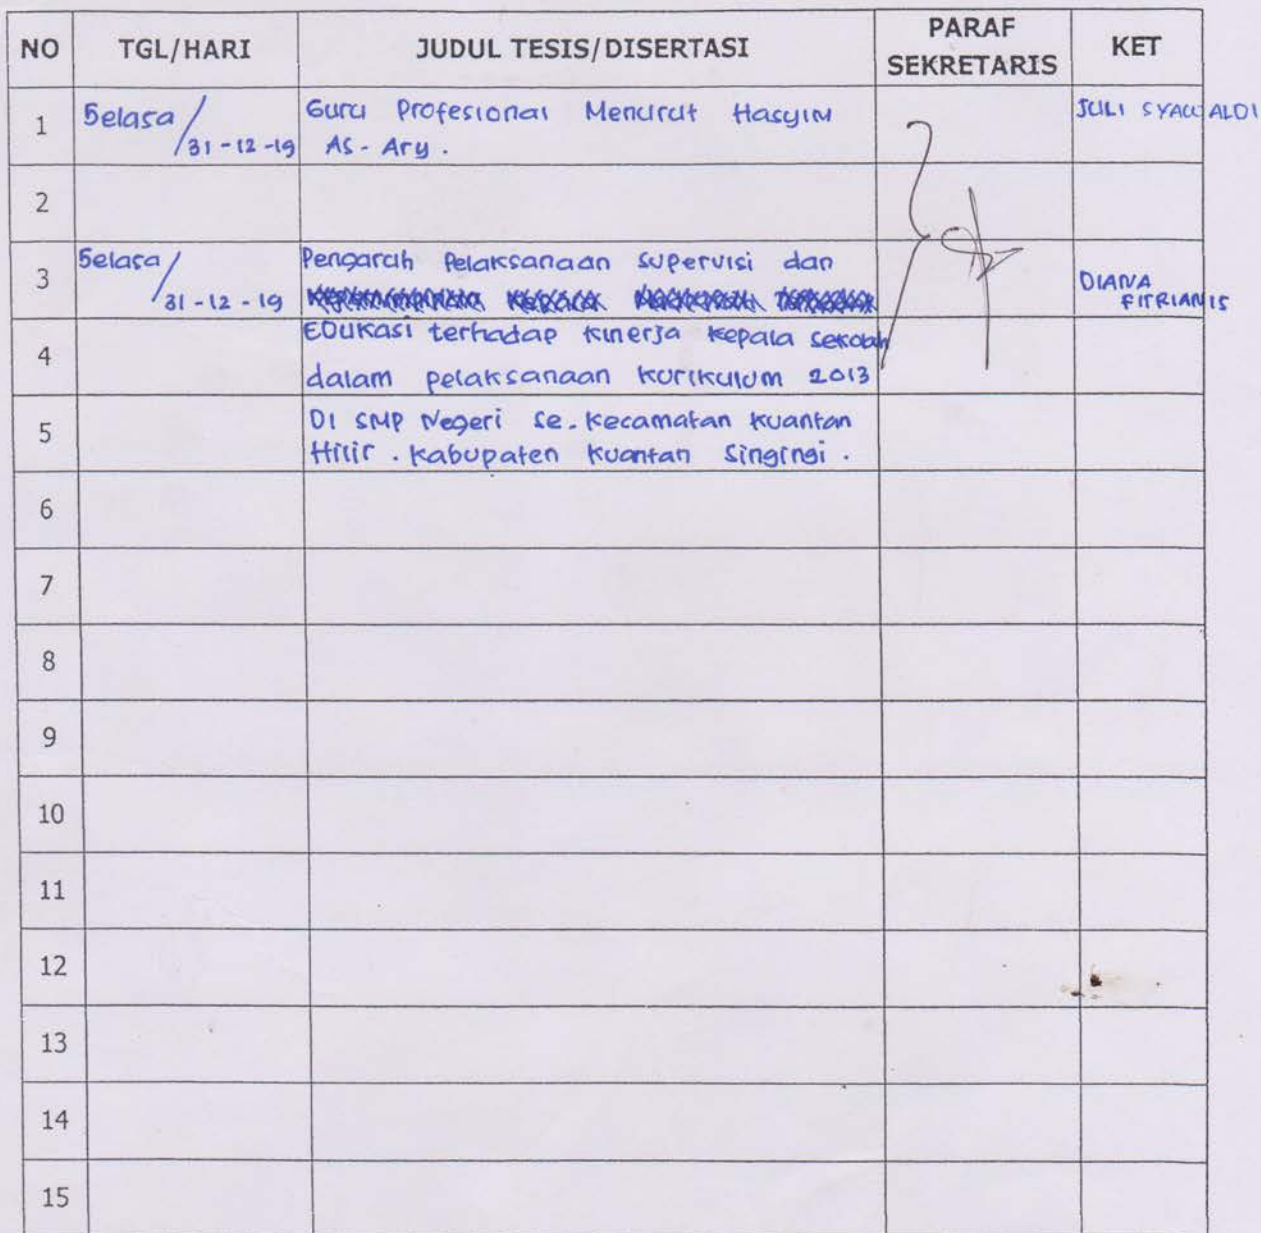 NO TGL/HARI JUDUL TESIS/DISERTASI PARAF SEKRETARIS KET
1 Selasa / 31-12-19 Guru Profesional Menurut Hasyim JULI SYAWALDI
As-Ary.
2
3 Selasa / 31-12-19 Pengaruh Pelaksanaan Supervisi dan DIANA FITRIANIS
4 EDUKasi terhadap Kinerja Kepala Sekolah
dalam pelaksanaan Kurikulum 2013
5 DI SMP Negeri Se. Kecamatan Kuantan
Hilir. Kabupaten Kuantan Singingi.
6
7
8
9
10
11
12
13
14
15